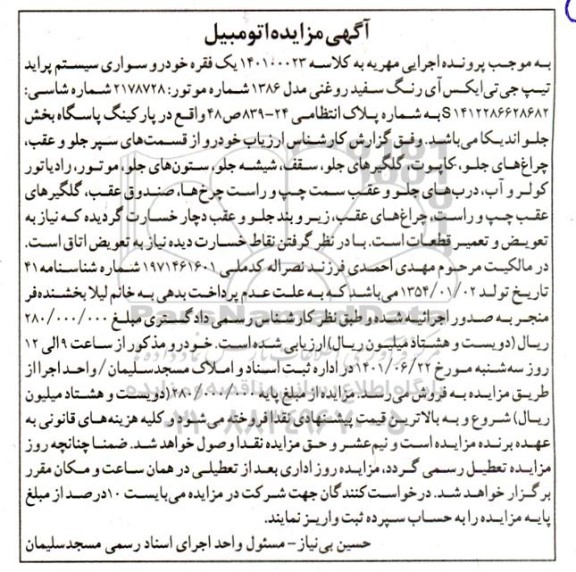 آگهی مزایده اتومبیل
به موجب پرونده اجرایی مهریه به کلاسه ۱۴۰۱۰۰۰۲۳ یک فقره خودرو سواری سیستم پراید
تیپ جی تی ایکس آی رنگ سفید روغنی مدل ۱۳۸۶ شماره موتور: ۲۱۷۸۷۲۸ شماره شاسی:
S۱۴۱۲۲۸۶۶۲۸۶۸۲ به شماره پلاک انتظامی ۲۴-۸۳۹ص۴۸ واقع در پارکینگ پاسگاه بخش
جلو اندیکا می‌باشد. وفق گزارش کارشناس ارزیاب خودرو از قسمت‌های سپر جلو و عقب،
چراغ‌های جلو، کاپوت، گلگیرهای جلو، سقف، شیشه جلو، ستون‌های جلو، موتور، رادیاتور
کولر و آب، درب‌های جلو و عقب سمت چپ و راست چرخ‌ها، صندوق عقب، گلگیرهای
عقب چپ و راست، چراغ‌های عقب، زیر و بند جلو و عقب دچار خسارت گردیده که نیاز به
تعویض و تعمیر قطعات است. با در نظر گرفتن نقاط خسارت دیده نیاز به تعویض اتاق است.
در مالکیت مرحوم مهدی احمدی فرزند نصراله کدملی ۱۹۷۱۴۶۱۶۰۱ شماره شناسنامه ۴۱
تاریخ تولد ۱۳۵۴/۰۱/۰۲ می‌باشد که به علت عدم پرداخت بدهی به خانم لیلا بخشنده‌فر
منجر به صدور اجرائیه شده و طبق نظر کارشناس رسمی دادگستری مبلغ ۲۸۰/۰۰۰/۰۰۰
ریال (دویست و هشتاد میلیون ریال) ارزیابی شده است. خودرو مذکور از ساعت ۹ الی ۱۲
روز سه‌شنبه مورخ ۱۴۰۱/۰۶/۲۲ در اداره ثبت اسناد و املاک مسجدسلیمان / واحد اجرا از
طریق مزایده به فروش می‌رسد. مزایده از مبلغ پایه ۲۸۰/۰۰۰/۰۰۰ (دویست و هشتاد میلیون
ریال) شروع و به بالاترین قیمت پیشنهادی نقدا فروخته می‌شود و کلیه هزینه‌های قانونی به
عهده برنده مزایده است و نیم‌عشر و حق مزایده نقدا وصول خواهد شد. ضمنا چنانچه روز
مزایده تعطیل رسمی گردد، مزایده روز اداری بعد از تعطیلی در همان ساعت و مکان مقرر
برگزار خواهد شد. درخواست کنندگان جهت شرکت در مزایده می‌بایست ۱۰درصد از مبلغ
پایه مزایده را به حساب سپرده ثبت واریز نمایند.
حسین بی‌نیاز - مسئول واحد اجرای اسناد رسمی مسجدسلیمان